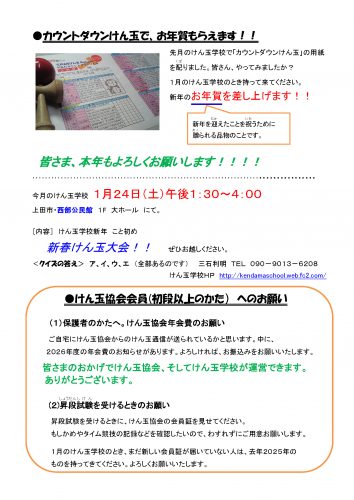 ●カウントダウンけん玉で、お年賀もらえます！！
先月のけん玉学校で「カウントダウンけん玉」の用紙
を配りました。皆さん、やってみましたか？
１月のけん玉学校のとき持って来てください。
新年のお年賀を差し上げます！！
新年を迎えたことを祝うために
贈られる品物のことです。
皆さま、本年もよろしくお願いします！！！！
今月のけん玉学校　１月２４日（土）午後１：３０～４：００
上田市・西部公民館　１Ｆ　大ホール　にて。
［内容］　けん玉学校新年　こと初め
新春けん玉大会！！　ぜひお越しください。
＜クイズの答え＞　ア、イ、ウ、エ　（全部あるのです）　三石利明　ＴＥＬ　０９０－９０１３－６２０８
けん玉学校ＨＰ　http://kendamaschool.web.fc2.com/
●けん玉協会会員（初段以上のかた）　へのお願い
（１）保護者のかたへ。けん玉協会年会費のお願い
ご自宅にけん玉協会からのけん玉通信が送られているかと思います。中に、
２０２６年度の年会費のお知らせがあります。よろしければ、お振込みをお願いいたします。
皆さまのおかげでけん玉協会、そしてけん玉学校が運営できます。
ありがとうございます。
（２）昇段試験を受けるときのお願い
昇段試験を受けるときに、けん玉協会の会員証を見せてください。
もしかめやタイム競技の記録などを確認したいので、わすれずにご用意お願いします。
１月のけん玉学校のとき、まだ新しい会員証が届いていない人は、去年２０２５年の
ものを持ってきてください。よろしくお願いいたします。